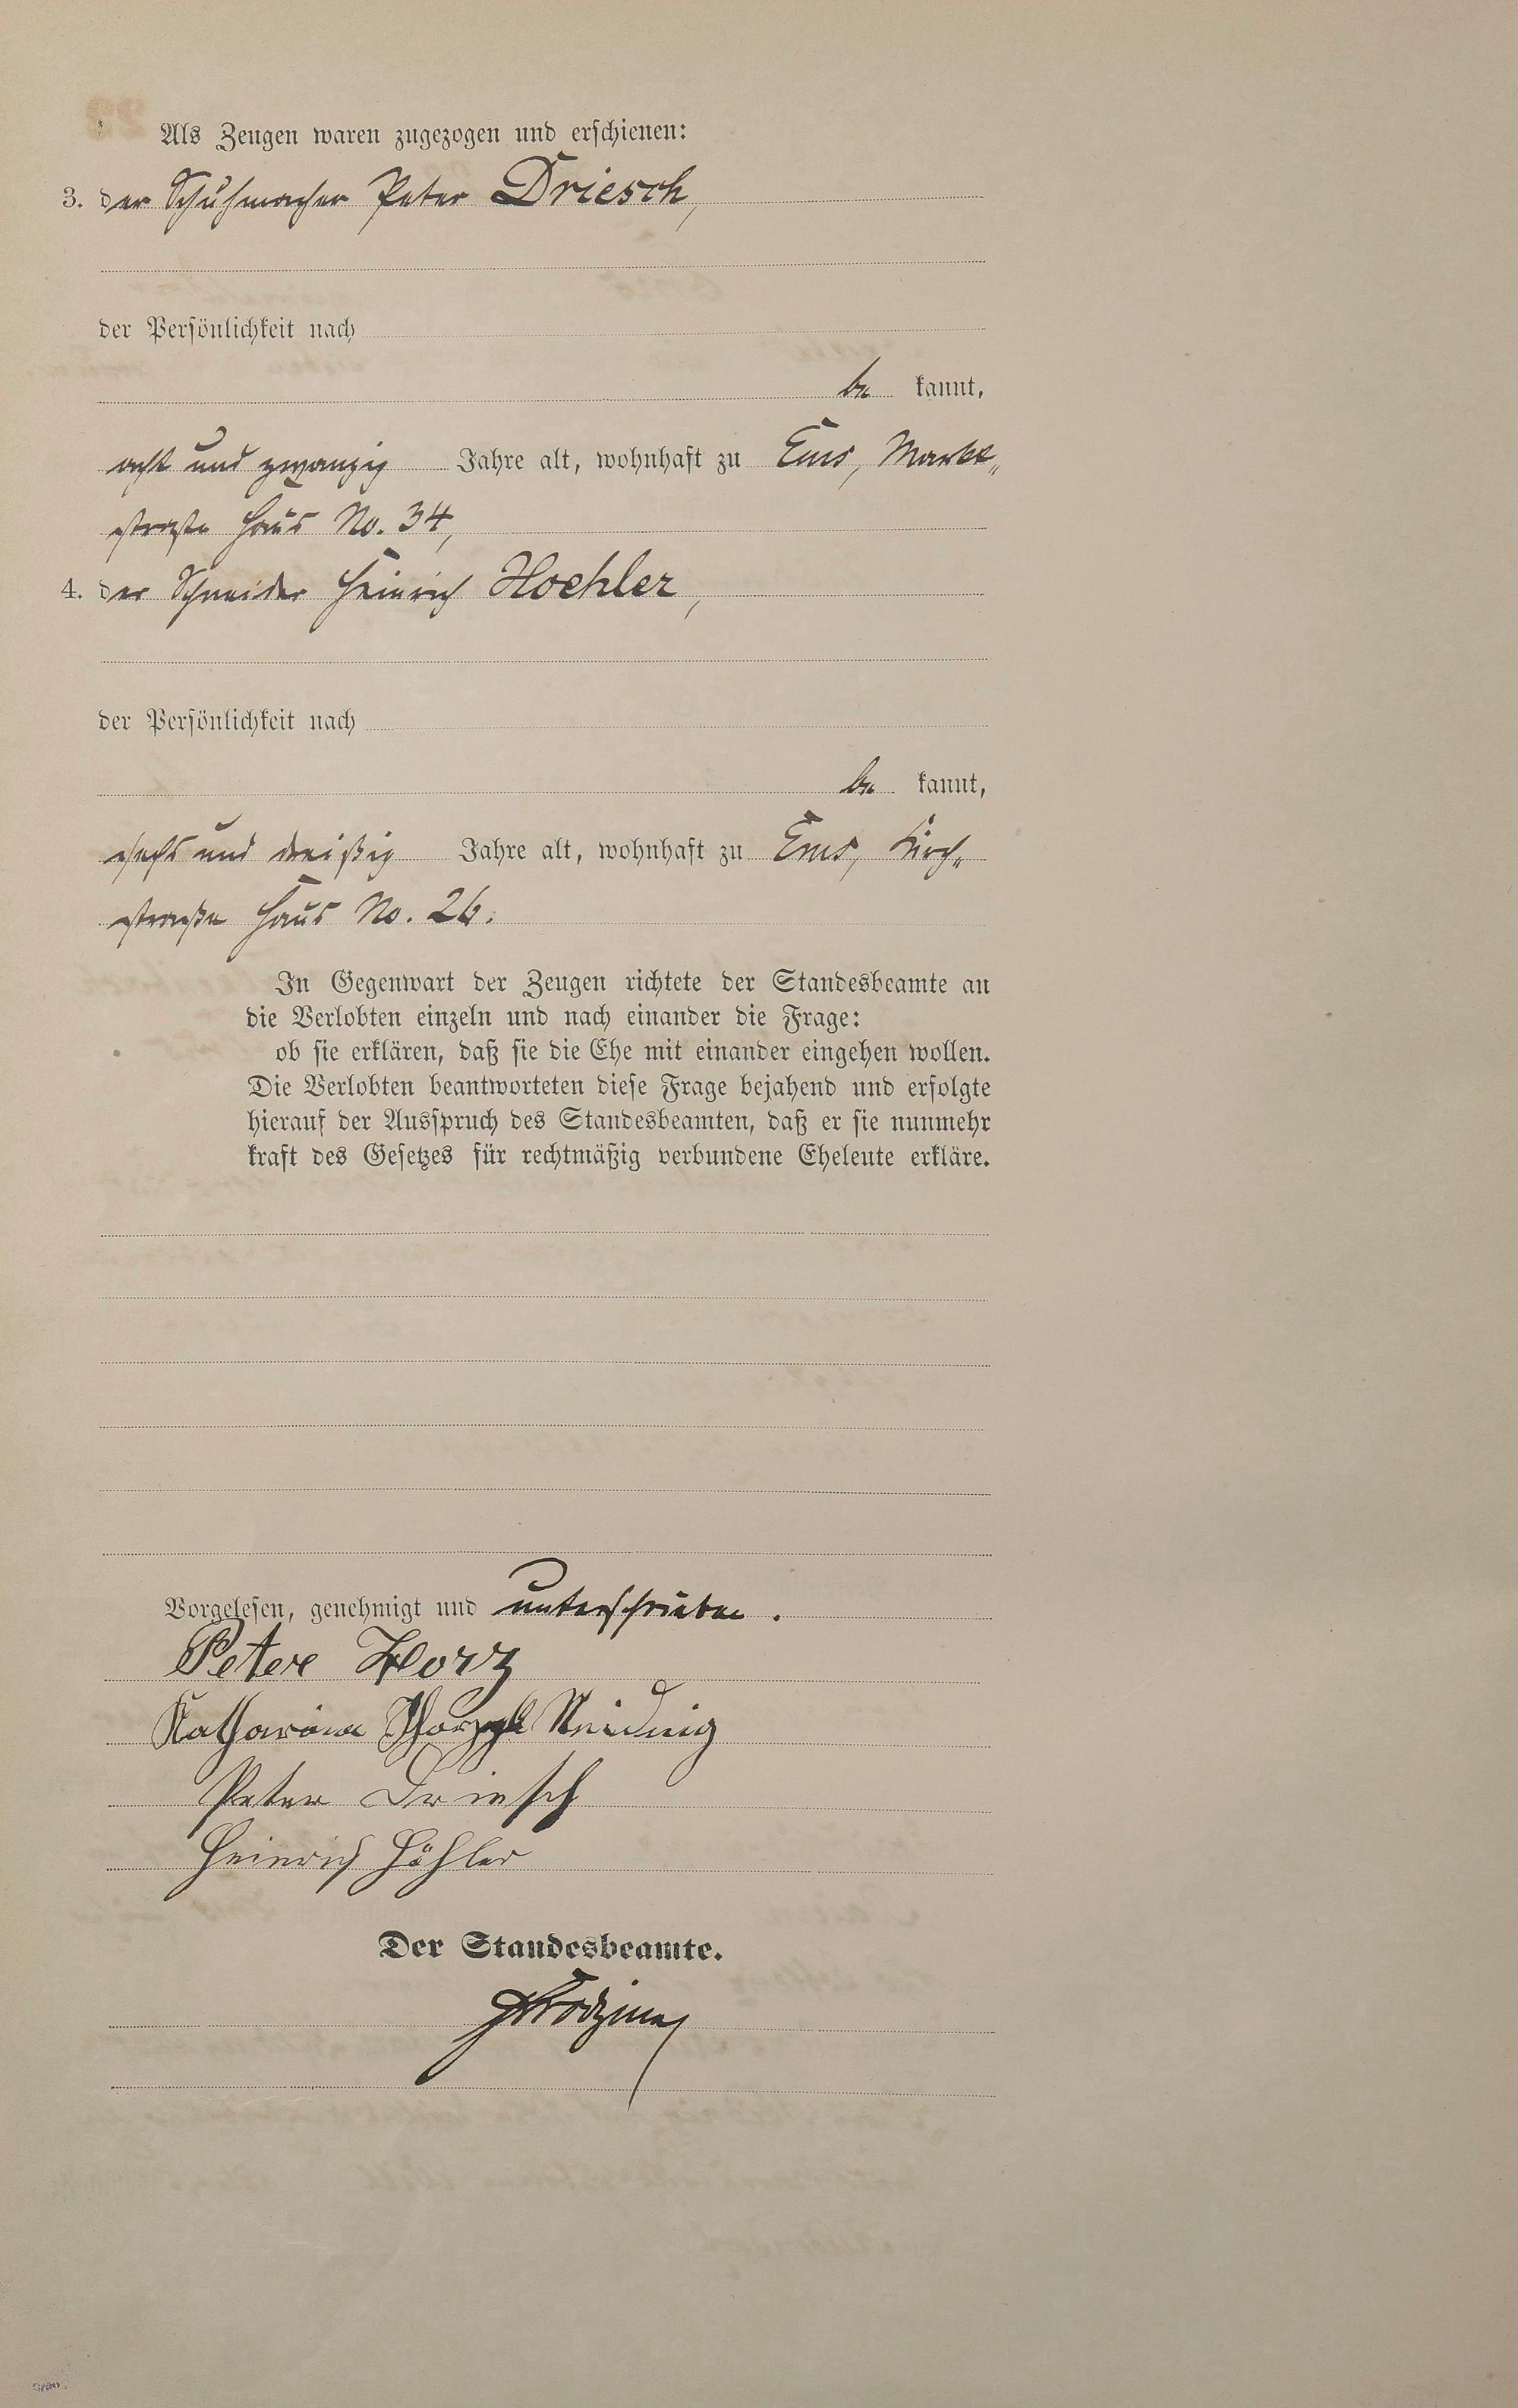 Als Zeugen waren zugezogen und erschienen:
3. der Schuhmacher Peter Driesch,
der Persönlichkeit nach
be kannt,
acht und zwanzig Jahre alt, wohnhaft zu Ems, Markt„
straße Haus No. 34,
4. der Schneider Heinrich Hoehler,
der Persönlichkeit nach
be kannt,
sechs und dreißig Jahre alt, wohnhaft zu Ems, Kirch„
straße Haus No. 26.
In Gegenwart der Zeugen richtete der Standesbeamte an
die Verlobten einzeln und nach einander die Frage:
ob sie erklären, daß sie die Ehe mit einander eingehen wollen.
Die Verlobten beantworteten diese Frage bejahend und erfolgte
hierauf der Ausspruch des Standesbeamten, daß er sie nunmehr
kraft des Gesetzes für rechtmäßig verbundene Eheleute erkläre.
Vorgelesen, genehmigt und unterschrieben.
Peter
Katharina Neidnig
Peter Driesch
Heinrich Höhler
Der Standesbeamte.